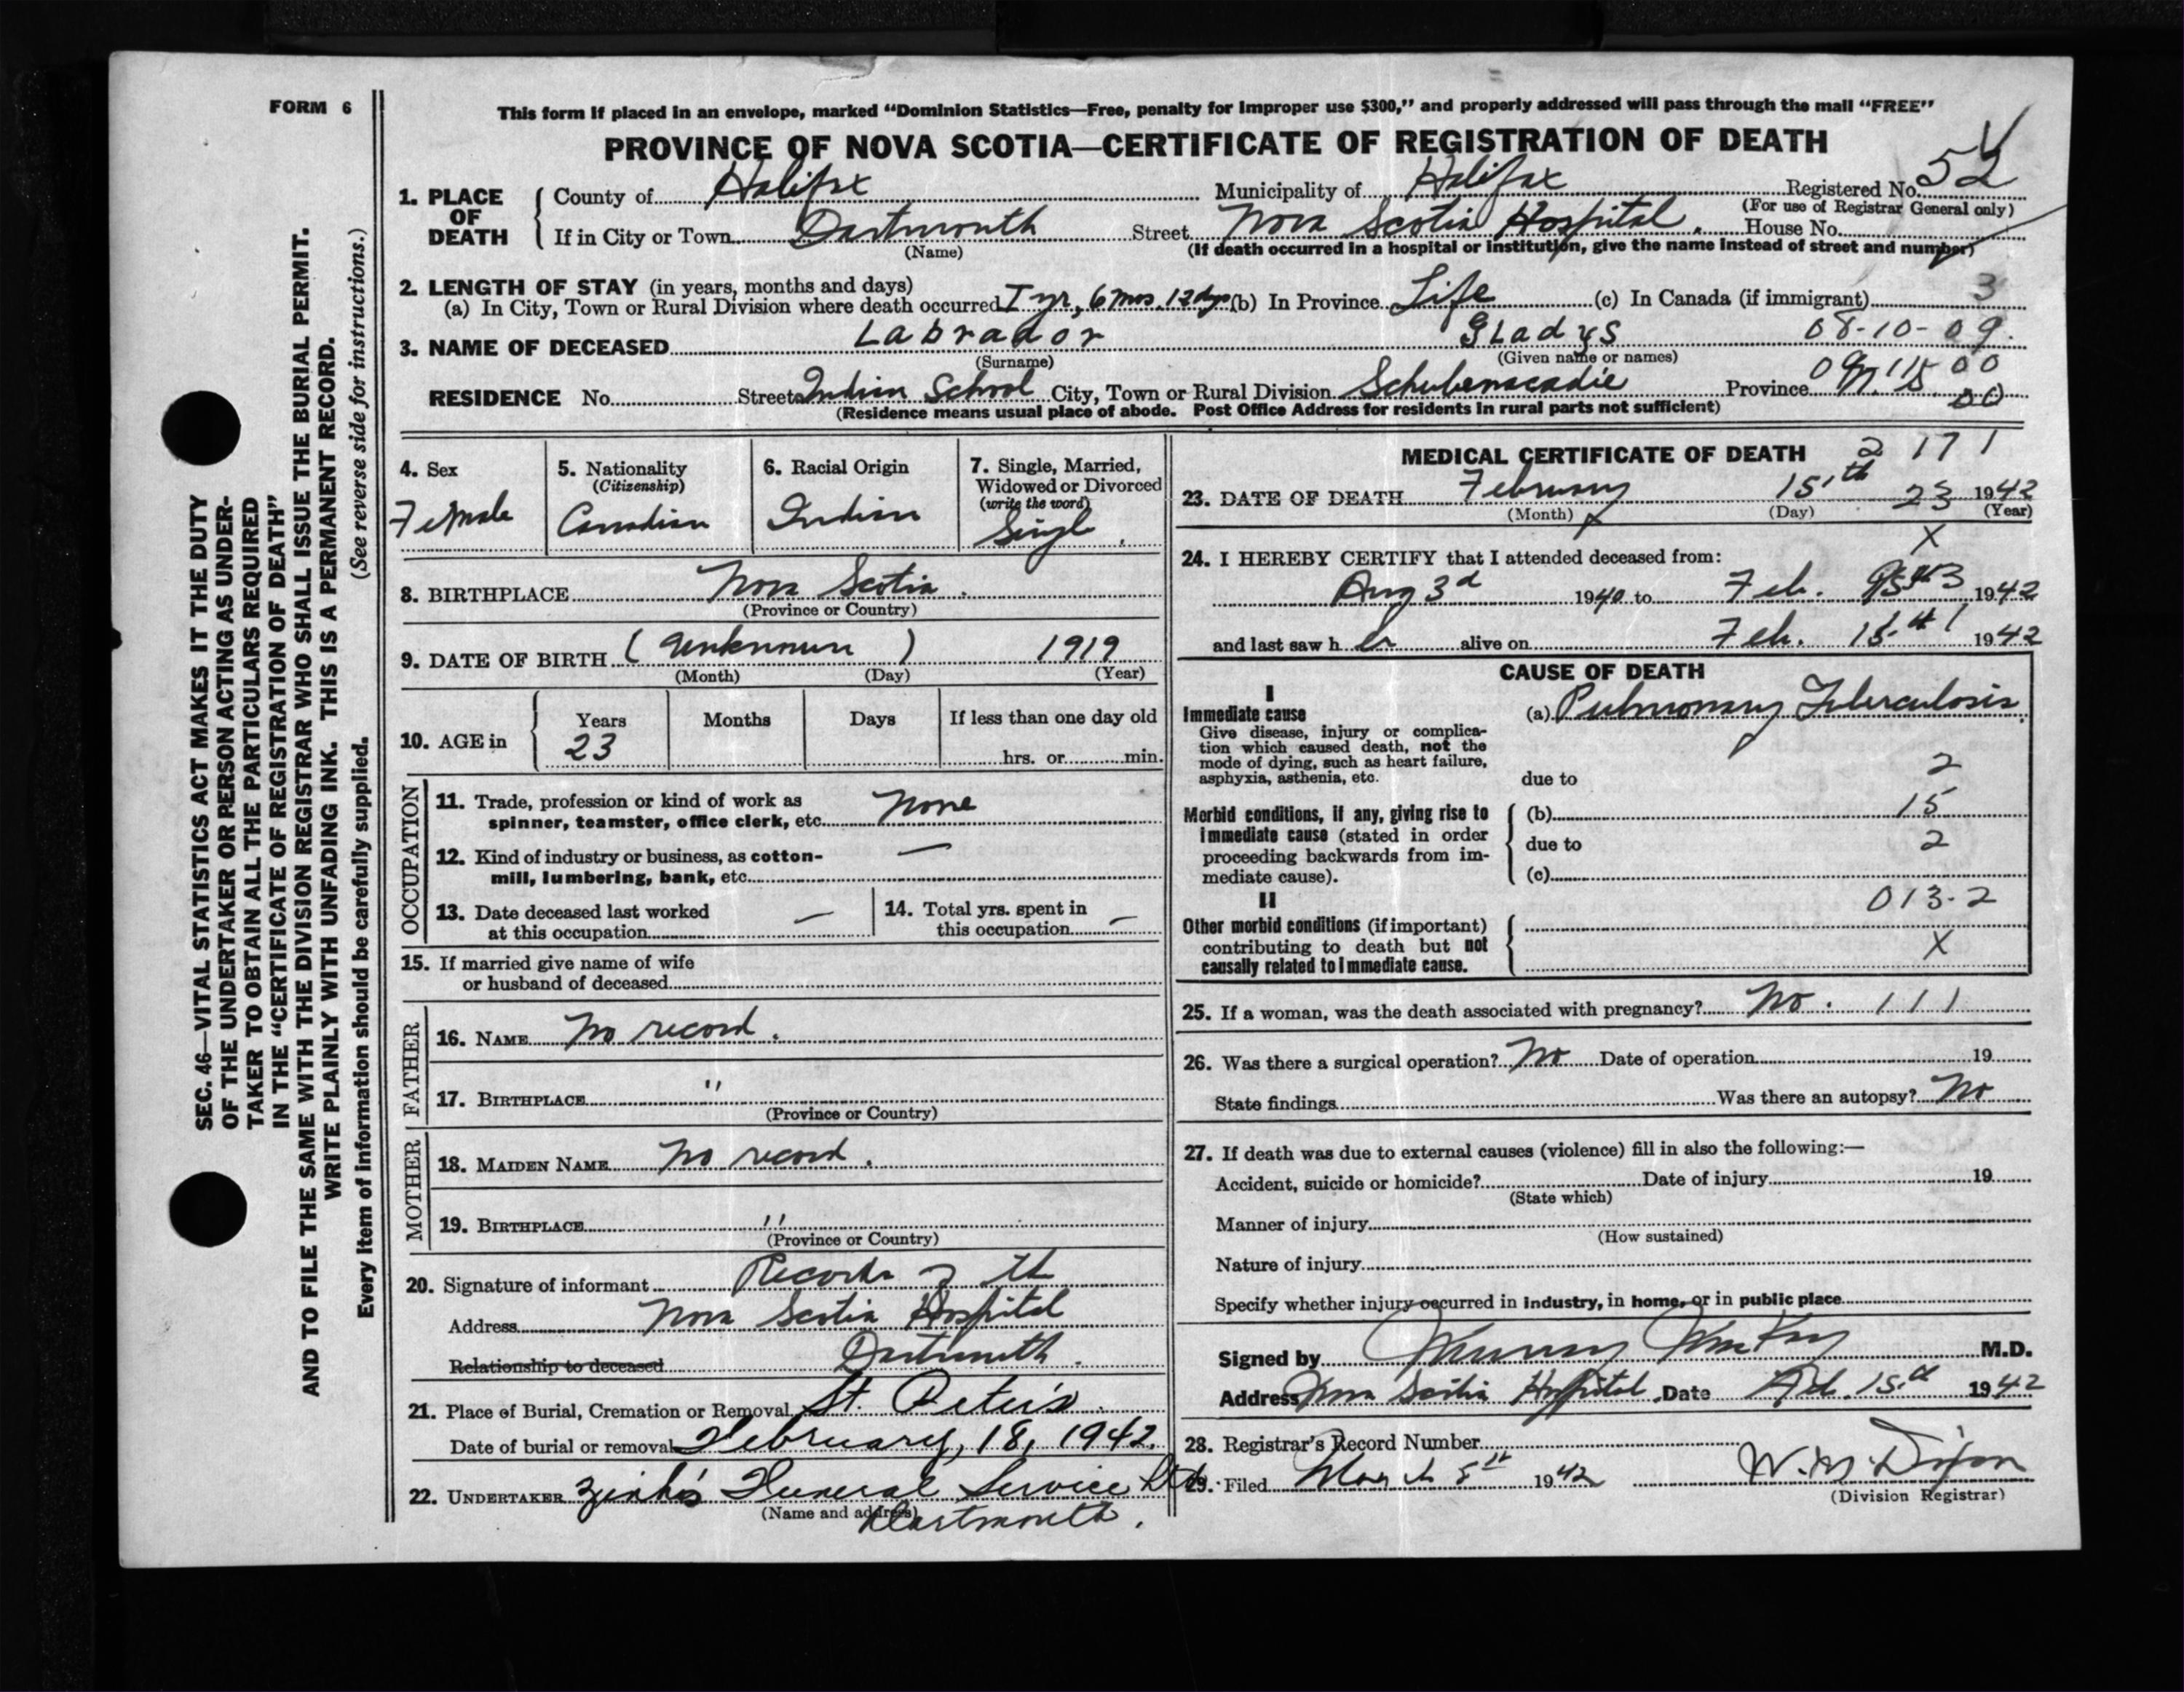 FORM 6
This form if placed in an envelope, marked “Dominion Statistics—Free, penalty for improper use $300,” and properly addressed will pass through the mail “FREE”
PROVINCE OF NOVA SCOTIA—CERTIFICATE OF REGISTRATION OF DEATH
1. PLACE OF DEATH { County of Halifax Municipality of Halifax Registered No. 52
(For use of Registrar General only)
If in City or Town Dartmouth Street Nova Scotia Hospital. House No.
(Name) (If death occurred in a hospital or institution, give the name instead of street and number)
2. LENGTH OF STAY (in years, months and days) 3
(a) In City, Town or Rural Division where death occurred 1 yr, 6 mos. 12 dys (b) In Province Life (c) In Canada (if immigrant)
3. NAME OF DECEASED Labrador Gladys 08-10-09.
(Surname) (Given name or names)
RESIDENCE No. Street Indian School City, Town or Rural Division Schubenacadie Province 00
(Residence means usual place of abode. Post Office Address for residents in rural parts not sufficient) 00
4. Sex
Female
5. Nationality
(Citizenship)
Canadian
6. Racial Origin
Indian
7. Single, Married,
Widowed or Divorced
(write the word)
Singl.
8. BIRTHPLACE Nova Scotia.
(Province or Country)
9. DATE OF BIRTH (Unknown) 1919
(Month) (Day) (Year)
10. AGE in { Years Months Days If less than one day old
23 hrs. or min.
OCCUPATION
11. Trade, profession or kind of work as
spinner, teamster, office clerk, etc. None
12. Kind of industry or business, as cotton- —
mill, lumbering, bank, etc.
13. Date deceased last worked
at this occupation —
14. Total yrs. spent in
this occupation —
15. If married give name of wife
or husband of deceased
FATHER
16. NAME No record.
17. BIRTHPLACE "
(Province or Country)
MOTHER
18. MAIDEN NAME No record.
19. BIRTHPLACE "
(Province or Country)
20. Signature of informant Records of the
Address Nova Scotia Hospital
Relationship to deceased Dartmouth.
21. Place of Burial, Cremation or Removal St. Peter's.
Date of burial or removal February, 18, 1942.
22. UNDERTAKER Zink's Funeral Service Ltd
(Name and address) Dartmouth.
MEDICAL CERTIFICATE OF DEATH 2 17 1
23. DATE OF DEATH February 15th 23 1942
(Month) X (Day) (Year)
X
24. I HEREBY CERTIFY that I attended deceased from:
Aug 3d 1940 to Feb. 1942
and last saw her alive on Feb. 15th 1942
CAUSE OF DEATH
I
Immediate cause (a) Pulmonary Tuberculosis.
Give disease, injury or complica-
tion which caused death, not the
mode of dying, such as heart failure,
asphyxia, asthenia, etc. due to 2
Morbid conditions, if any, giving rise to (b) 15
immediate cause (stated in order due to 2
proceeding backwards from im-
mediate cause). (c)
II 013-2
Other morbid conditions (if important)
contributing to death but not X
causally related to immediate cause.
25. If a woman, was the death associated with pregnancy? No. 111
26. Was there a surgical operation? No Date of operation 19
State findings Was there an autopsy? No
27. If death was due to external causes (violence) fill in also the following:—
Accident, suicide or homicide? Date of injury 19
(State which)
Manner of injury
(How sustained)
Nature of injury
Specify whether injury occurred in industry, in home, or in public place
Signed by Murray MacKay M.D.
Address Nova Scotia Hospital. Date Feb. 15th 1942
28. Registrar's Record Number
29. Filed March 5th 1942 W. M. Dixon
(Division Registrar)
SEC. 46—VITAL STATISTICS ACT MAKES IT THE DUTY
OF THE UNDERTAKER OR PERSON ACTING AS UNDER-
TAKER TO OBTAIN ALL THE PARTICULARS REQUIRED
IN THE “CERTIFICATE OF REGISTRATION OF DEATH”
AND TO FILE THE SAME WITH THE DIVISION REGISTRAR WHO SHALL ISSUE THE BURIAL PERMIT.
WRITE PLAINLY WITH UNFADING INK. THIS IS A PERMANENT RECORD.
Every item of information should be carefully supplied. (See reverse side for instructions.)